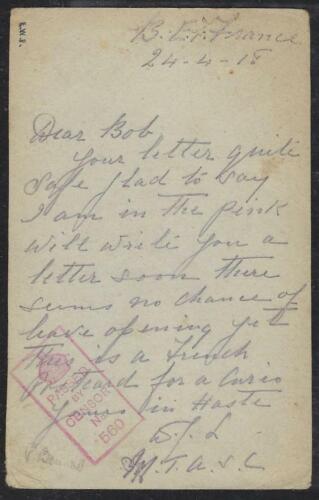 E.W.3.
B.E.F. France
24-4-18
Dear Bob
Your letter quite
safe glad to say
I am in the pink
will write you a
letter soon there
seems no chance of
leave opening yet
this is a French
Postcard for a Curio
Yours in Haste
M.T.A.S.C
PASSED
BY
CENSOR
No.
560